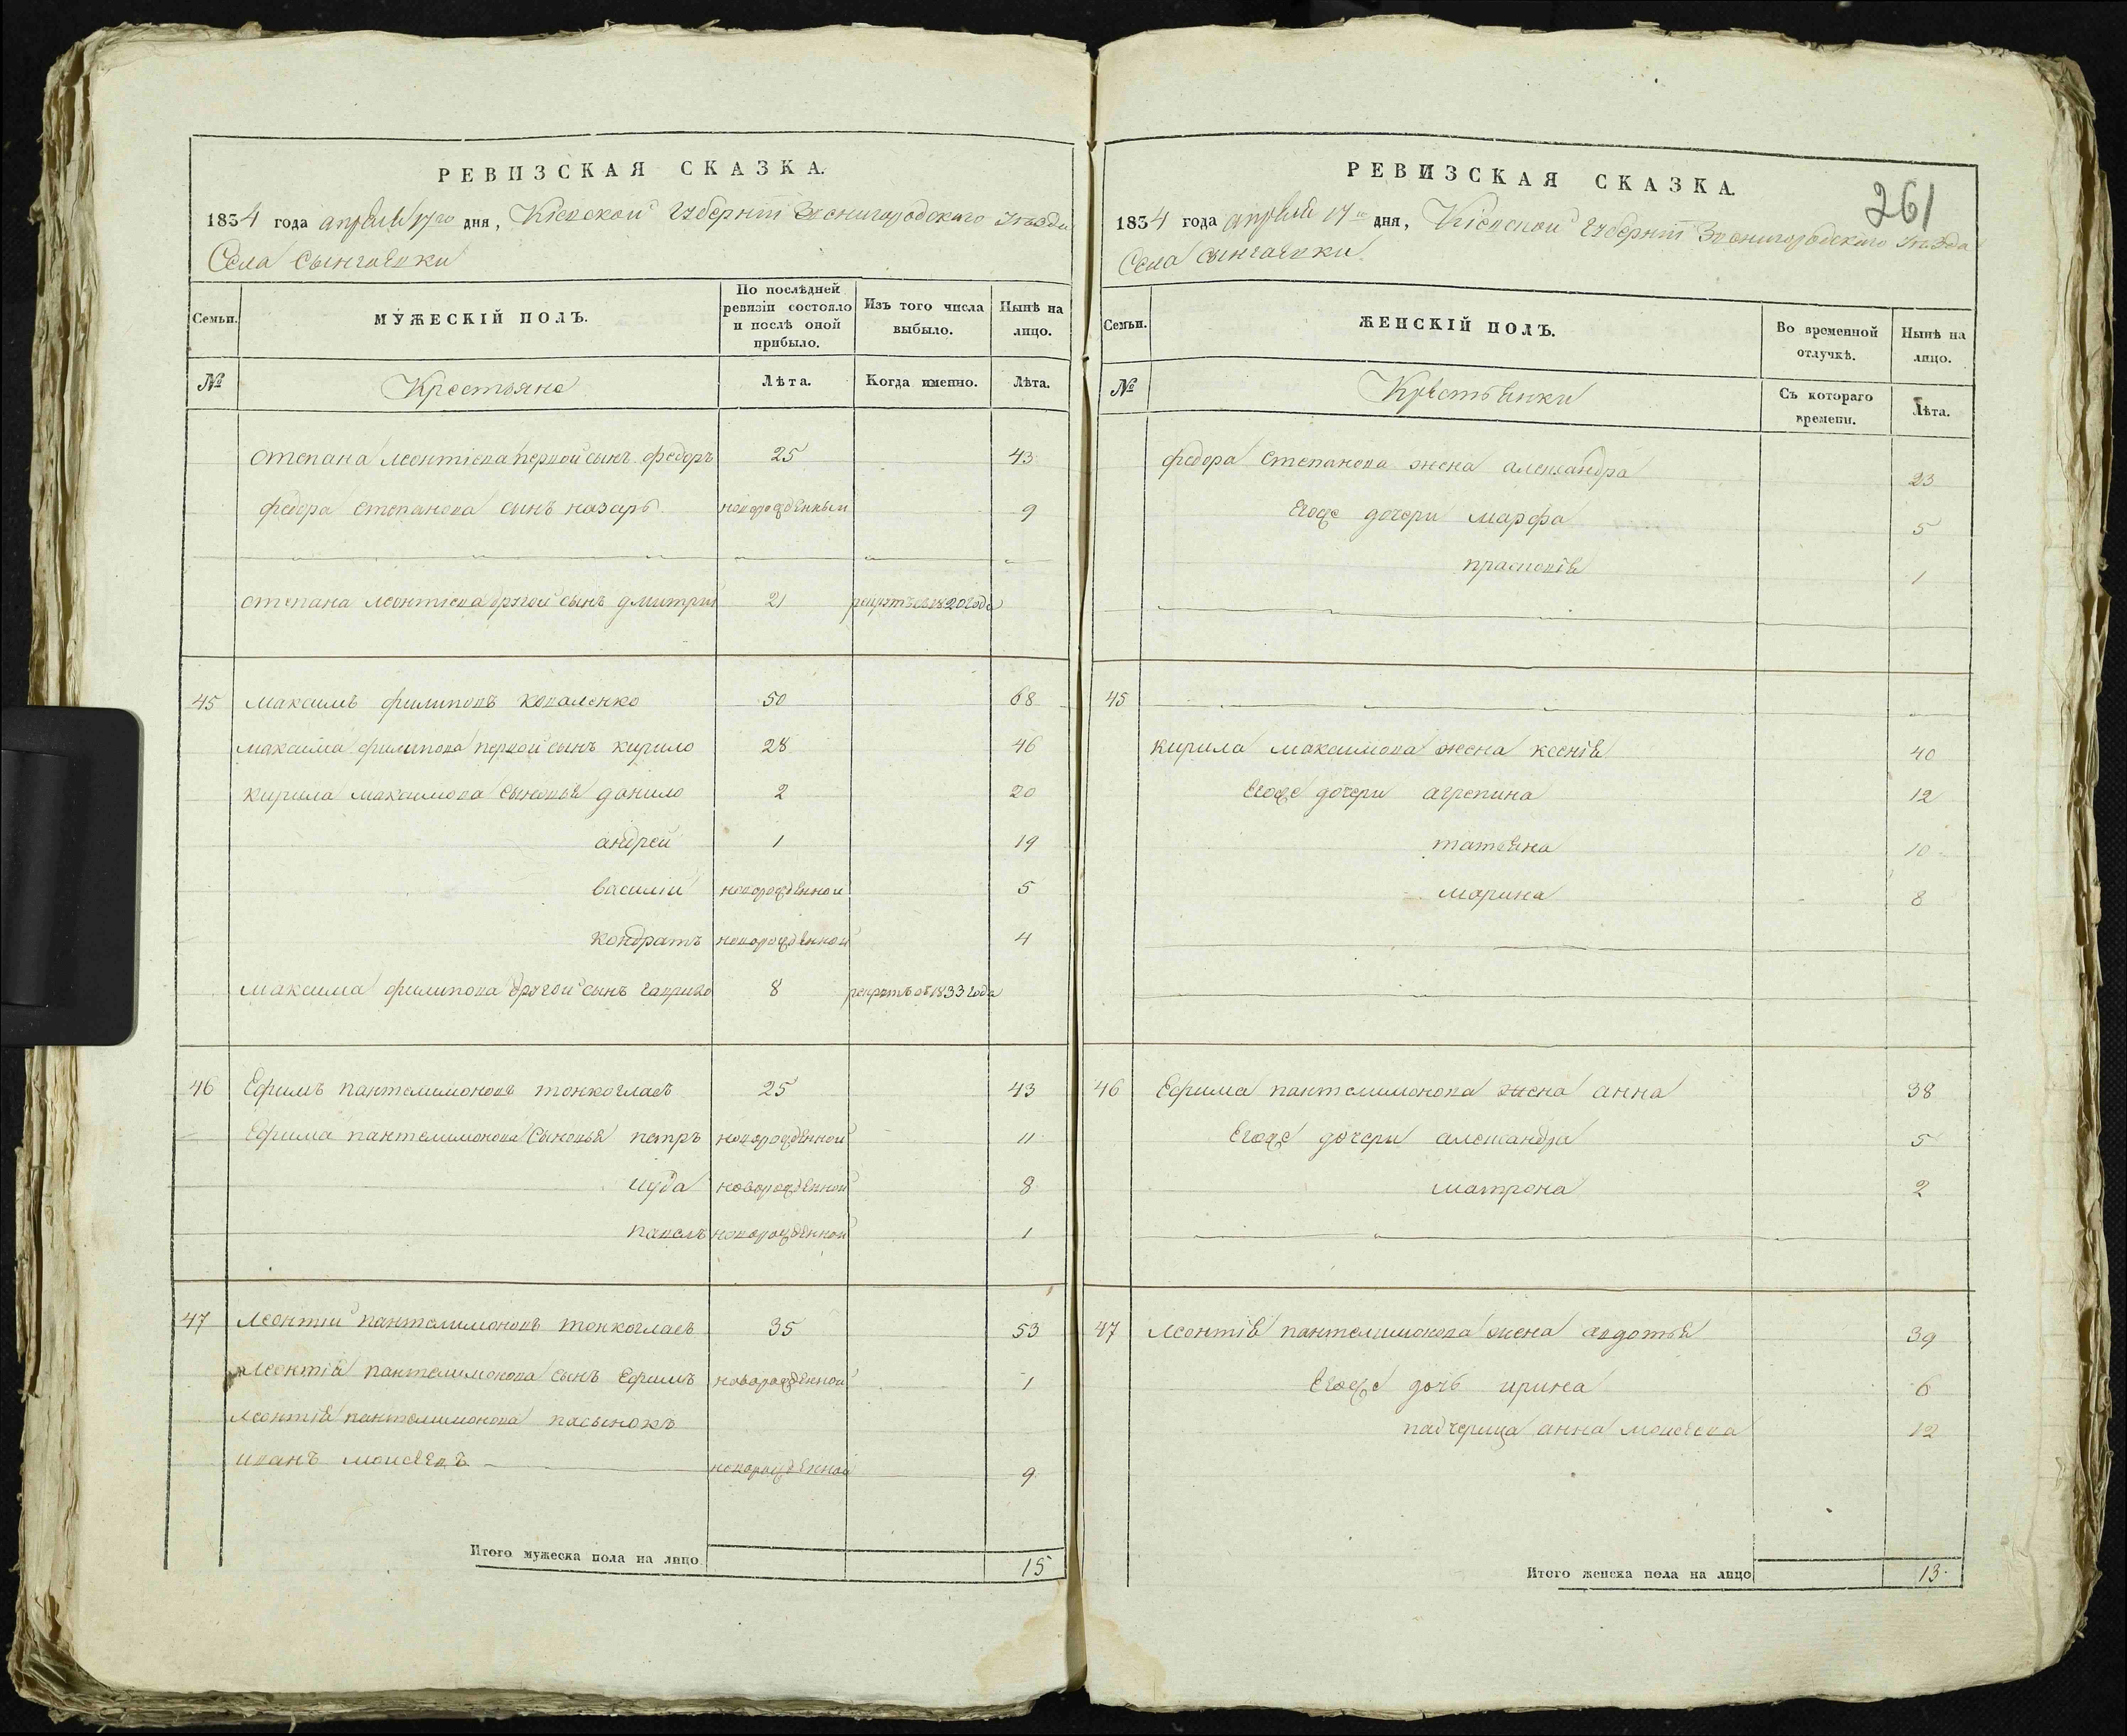 РЕВИЗСКАЯ СКАЗКА.
1834 года апреля 17го дня, Кіевской Губерніи Звенигородскаго Уѣзда
Села Сынгаевки
Семьи. МУЖЕСКІЙ ПОЛЪ. По послѣдней ревизіи состояло и послѣ оной прибыло. Изъ того числа выбыло. Нынѣ на лицо.
№ Крестьяне Лѣта. Когда именно. Лѣта.
степана леонтіева первой сынъ федоръ 25 43
федора степанова сынъ назаръ новорожденный 9
степана леонтіева другой сынъ дмитрій 21 рекрутъ съ 1820 года
45 максимъ филиповъ коваленко 50 68
максима филипова первой сынъ кирило 28 46
кирила максимова сыновья данило 2 20
андрей 1 19
василій новорожденной 5
кондратъ новорожденной 4
максима филипова другой сынъ гаврило 8 рекрутъ съ 1833 года
46 Ефимъ пантелимоновъ тонкогласъ 25 43
Ефима пантелимонова сыновья петръ новорожденной 11
иуда новорожденной 8
павелъ новорожденной 1
47 леонтій пантелимоновъ тонкогласъ 35 53
леонтія пантелимонова сынъ Ефимъ новорожденной 1
леонтія пантелимонова пасынокъ
иванъ моисеевъ новорожденной 9
Итого мужеска пола на лицо 15
261
РЕВИЗСКАЯ СКАЗКА.
1834 года апреля 17го дня, Кіевской Губерніи Звенигородскаго Уѣзда
Села Сынгаевки
Семьи. ЖЕНСКІЙ ПОЛЪ. Во временной отлучкѣ. Нынѣ на лицо.
№ Крестьянки Съ котораго времени. Лѣта.
федора степанова жена александра 23
Егоже дочери марфа 5
прасковія 1
45
кирила максимова жена ксенія 40
Егоже дочери агрепина 12
татьяна 10
марина 8
46 Ефима пантелимонова жена анна 38
Егоже дочери александра 5
матрона 2
47 леонтія пантелимонова жена авдотья 39
Егоже дочь ирина 6
падчерица анна моисеева 12
Итого женска пола на лицо 13.